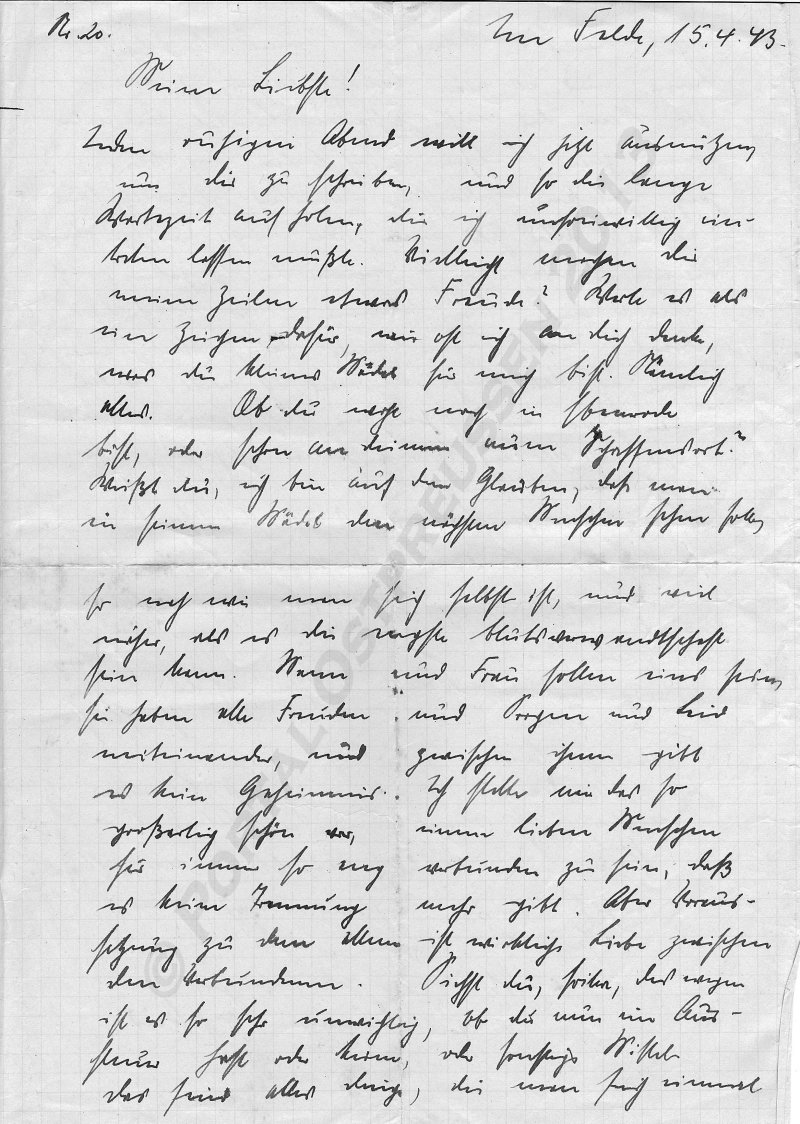 Nr. 20.
Im Felde, 15.4.43.
Meine Liebste!
Jeden ruhigen Abend will ich jetzt ausnützen,
um dir zu schreiben, und so die lange
Wartezeit aufholen, die ich unfreiwillig ein-
treten lassen mußte. Vielleicht machen dir
meine Zeilen etwas Freude? Werte es als
ein Zeichen dafür, wie oft ich an dich denke,
was du kleines Mädel für mich bist. Nämlich
alles. Ob du wohl noch in Ebenrode
bist, oder schon an deinem neuen Schaffensort?
Weißt du, ich bin auf dem Glauben, daß man
in seinem Mädel den nächsten Menschen sehen soll,
so nah wie man sich selbst ist, und viel
näher, als es die engste Blutsverwandtschaft
sein kann. Mann und Frau sollen eins sein,
sie haben alle Freuden und Sorgen und Leid
miteinander, und zwischen ihnen gibt
es kein Geheimnis. Ich stelle mir das so
großartig schön vor, einem lieben Menschen
für immer so eng verbunden zu sein, daß
es keine Trennung mehr gibt. Aber Voraus-
setzung zu dem allem ist wirkliche Liebe zwischen
den Verbundenen. Siehst du, deswegen
ist es so sehr unwichtig, ob du nun eine Aus-
steuer hast oder keine, oder sonstige Mittel.
Das sind alles Dinge, die man sich einmal
© OSTPREUSSEN 2013